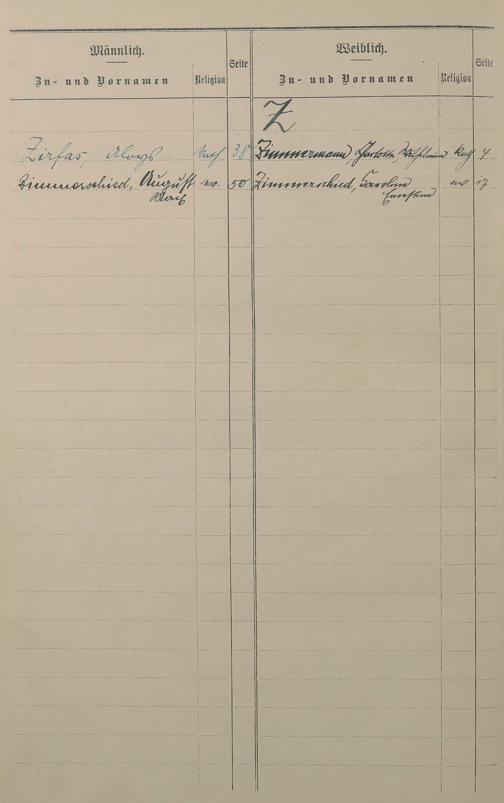 Männlich.
Zu- und Vornamen
Religion
Seite
Weiblich.
Zu- und Vornamen
Religion
Seite
Z
Zirfas, Aloys kath. 38 Zimmermann, Charlotte, Wilhelmine 4
Zimmerschied, August ev. 50 Zimmerschied, Caroline ev. 17
Ernestine